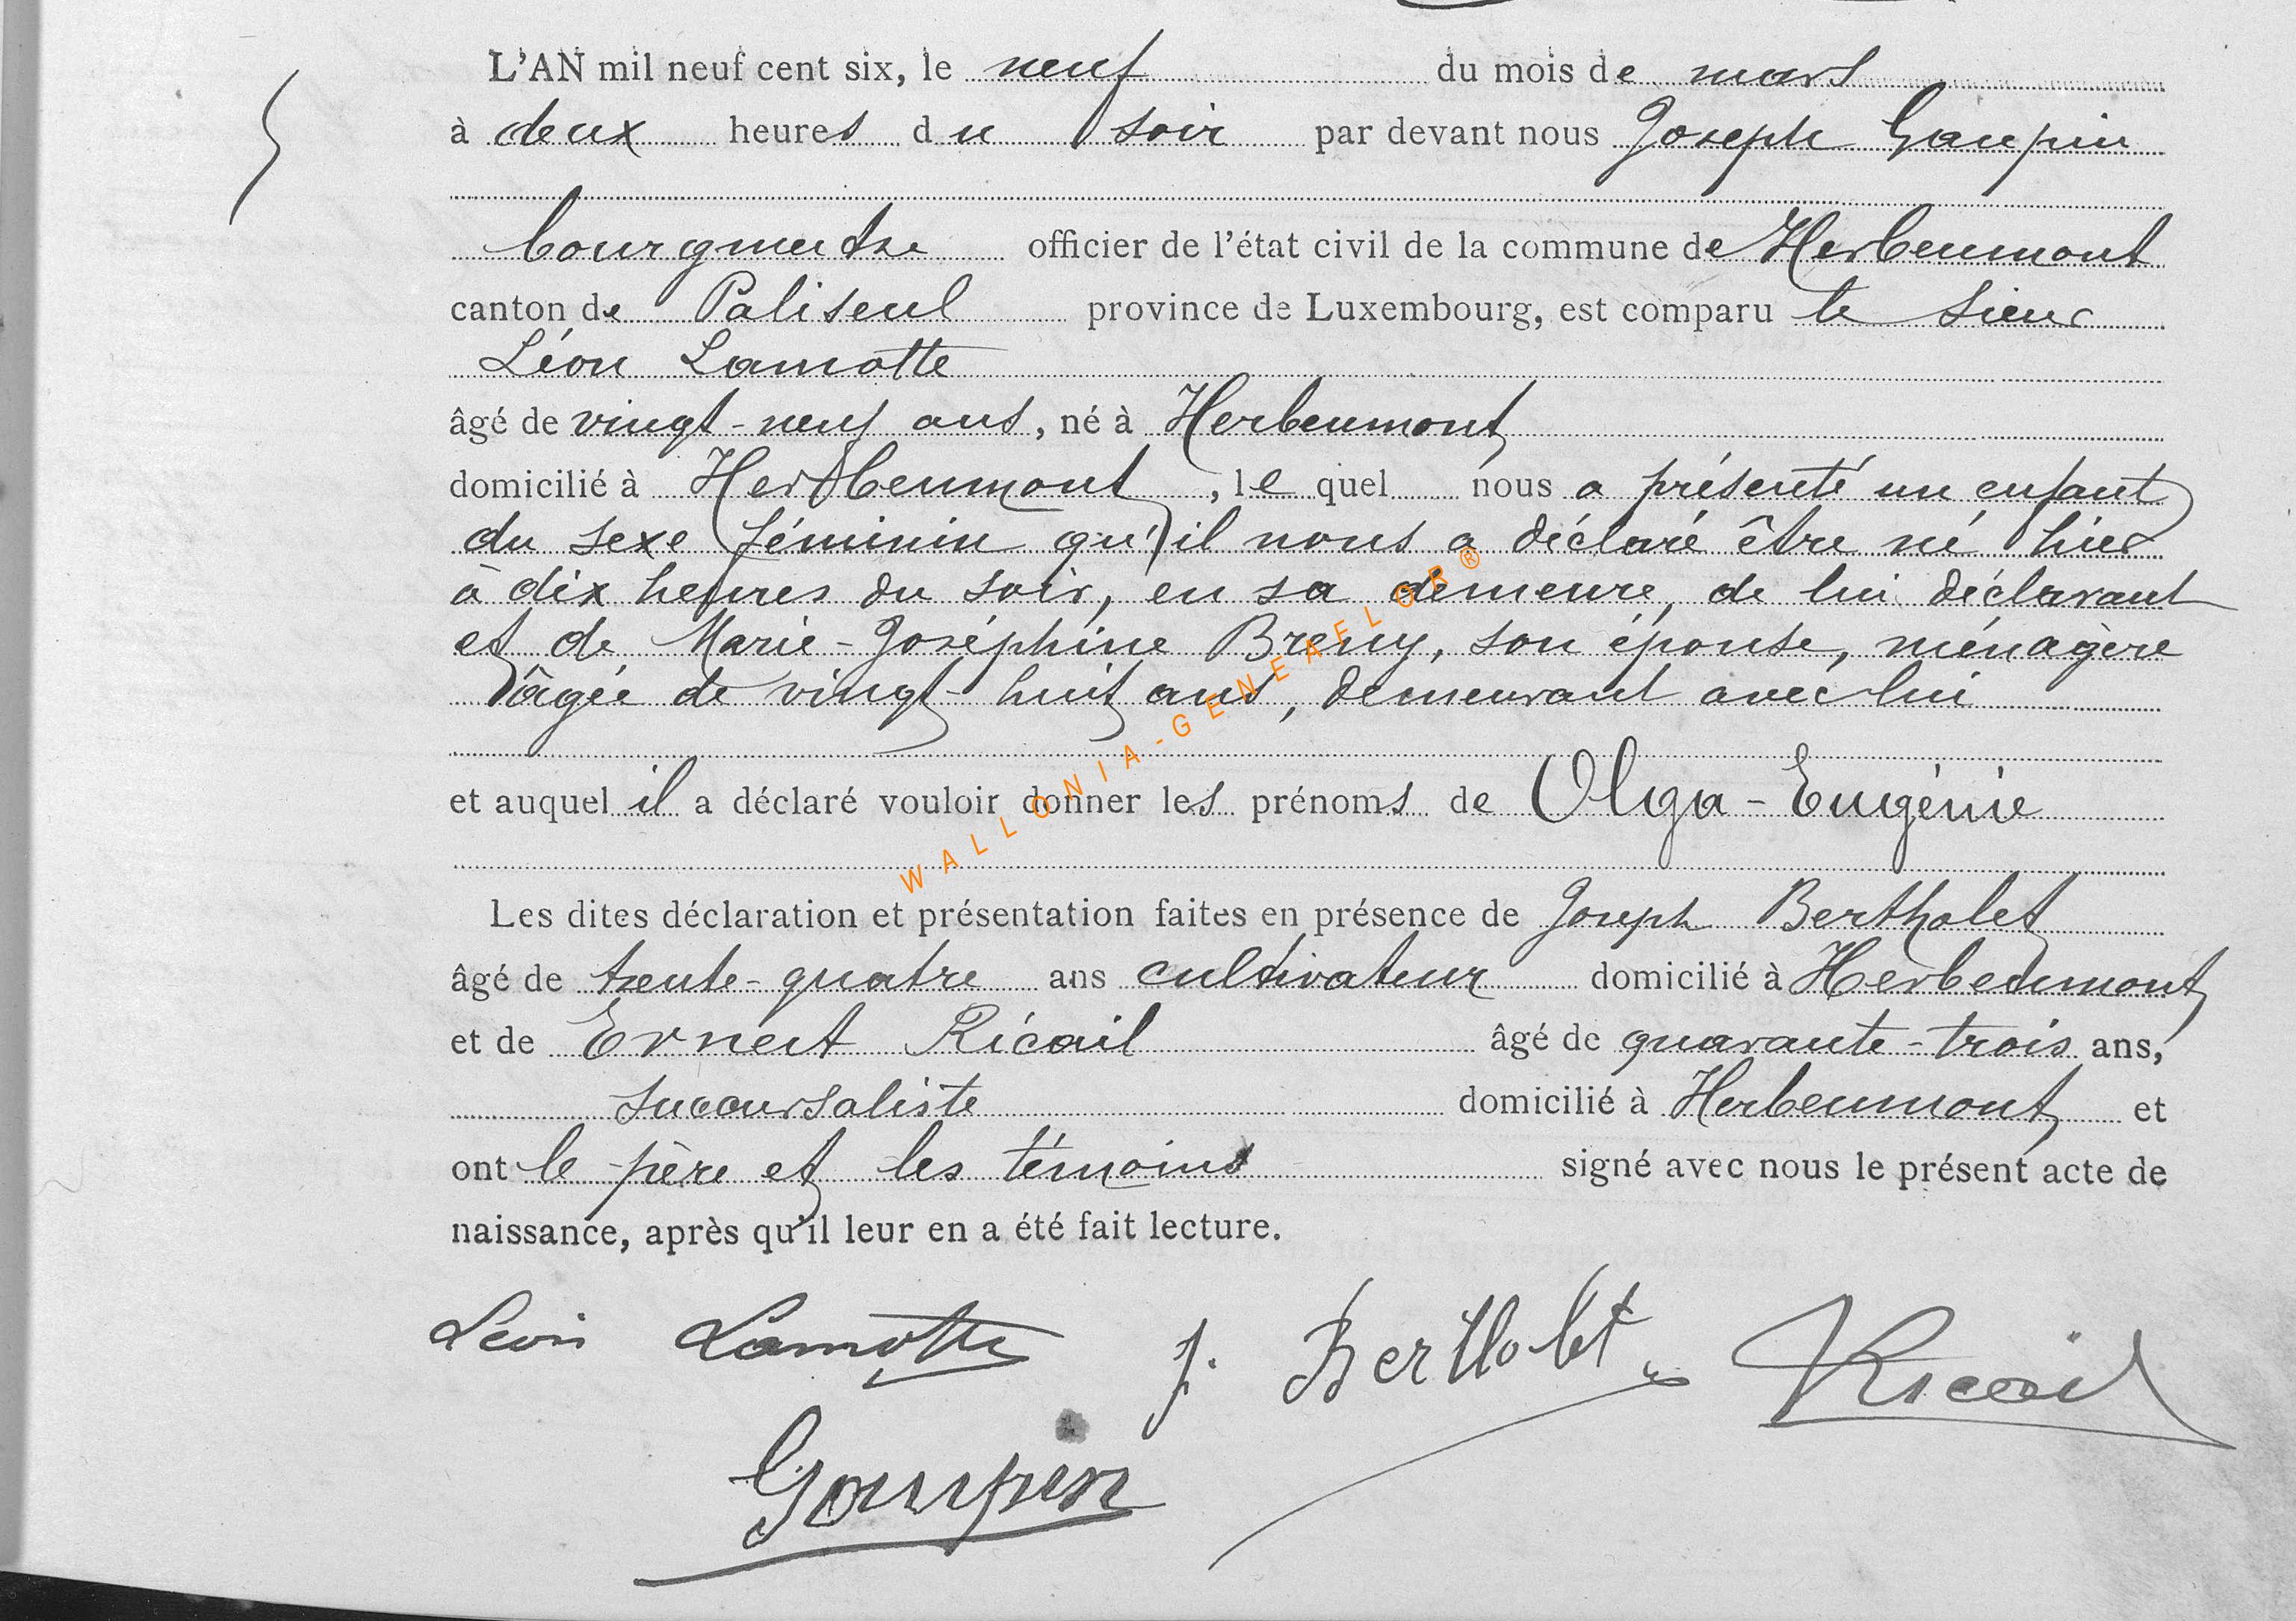 L'AN mil neuf cent six, le neuf du mois de mars
à deux heures du soir par devant nous Joseph Gaupin
bourgmestre officier de l'état civil de la commune de Herbeumont
canton de Paliseul province de Luxembourg, est comparu le sieur
Léon Lamotte
âgé de vingt-neuf ans, né à Herbeumont
domicilié à Herbeumont, lequel nous a présenté un enfant
du sexe féminin qu'il nous a déclaré être né hier
à dix heures du soir, en sa demeure, de lui déclarant
et de Marie-Joséphine Breny, son épouse, ménagère
âgée de vingt-huit ans, demeurant avec lui
et auquel il a déclaré vouloir donner les prénoms de Olga-Eugénie
Les dites déclaration et présentation faites en présence de Joseph Bertholet
âgé de trente-quatre ans cultivateur domicilié à Herbeumont
et de Ernest Ricail âgé de quarante-trois ans,
succursaliste domicilié à Herbeumont et
ont le père et les témoins signé avec nous le présent acte de
naissance, après qu'il leur en a été fait lecture.
Léon Lamotte J. Bertholet Ricail
Gaupin
WALLONIA-GENEAELOR®